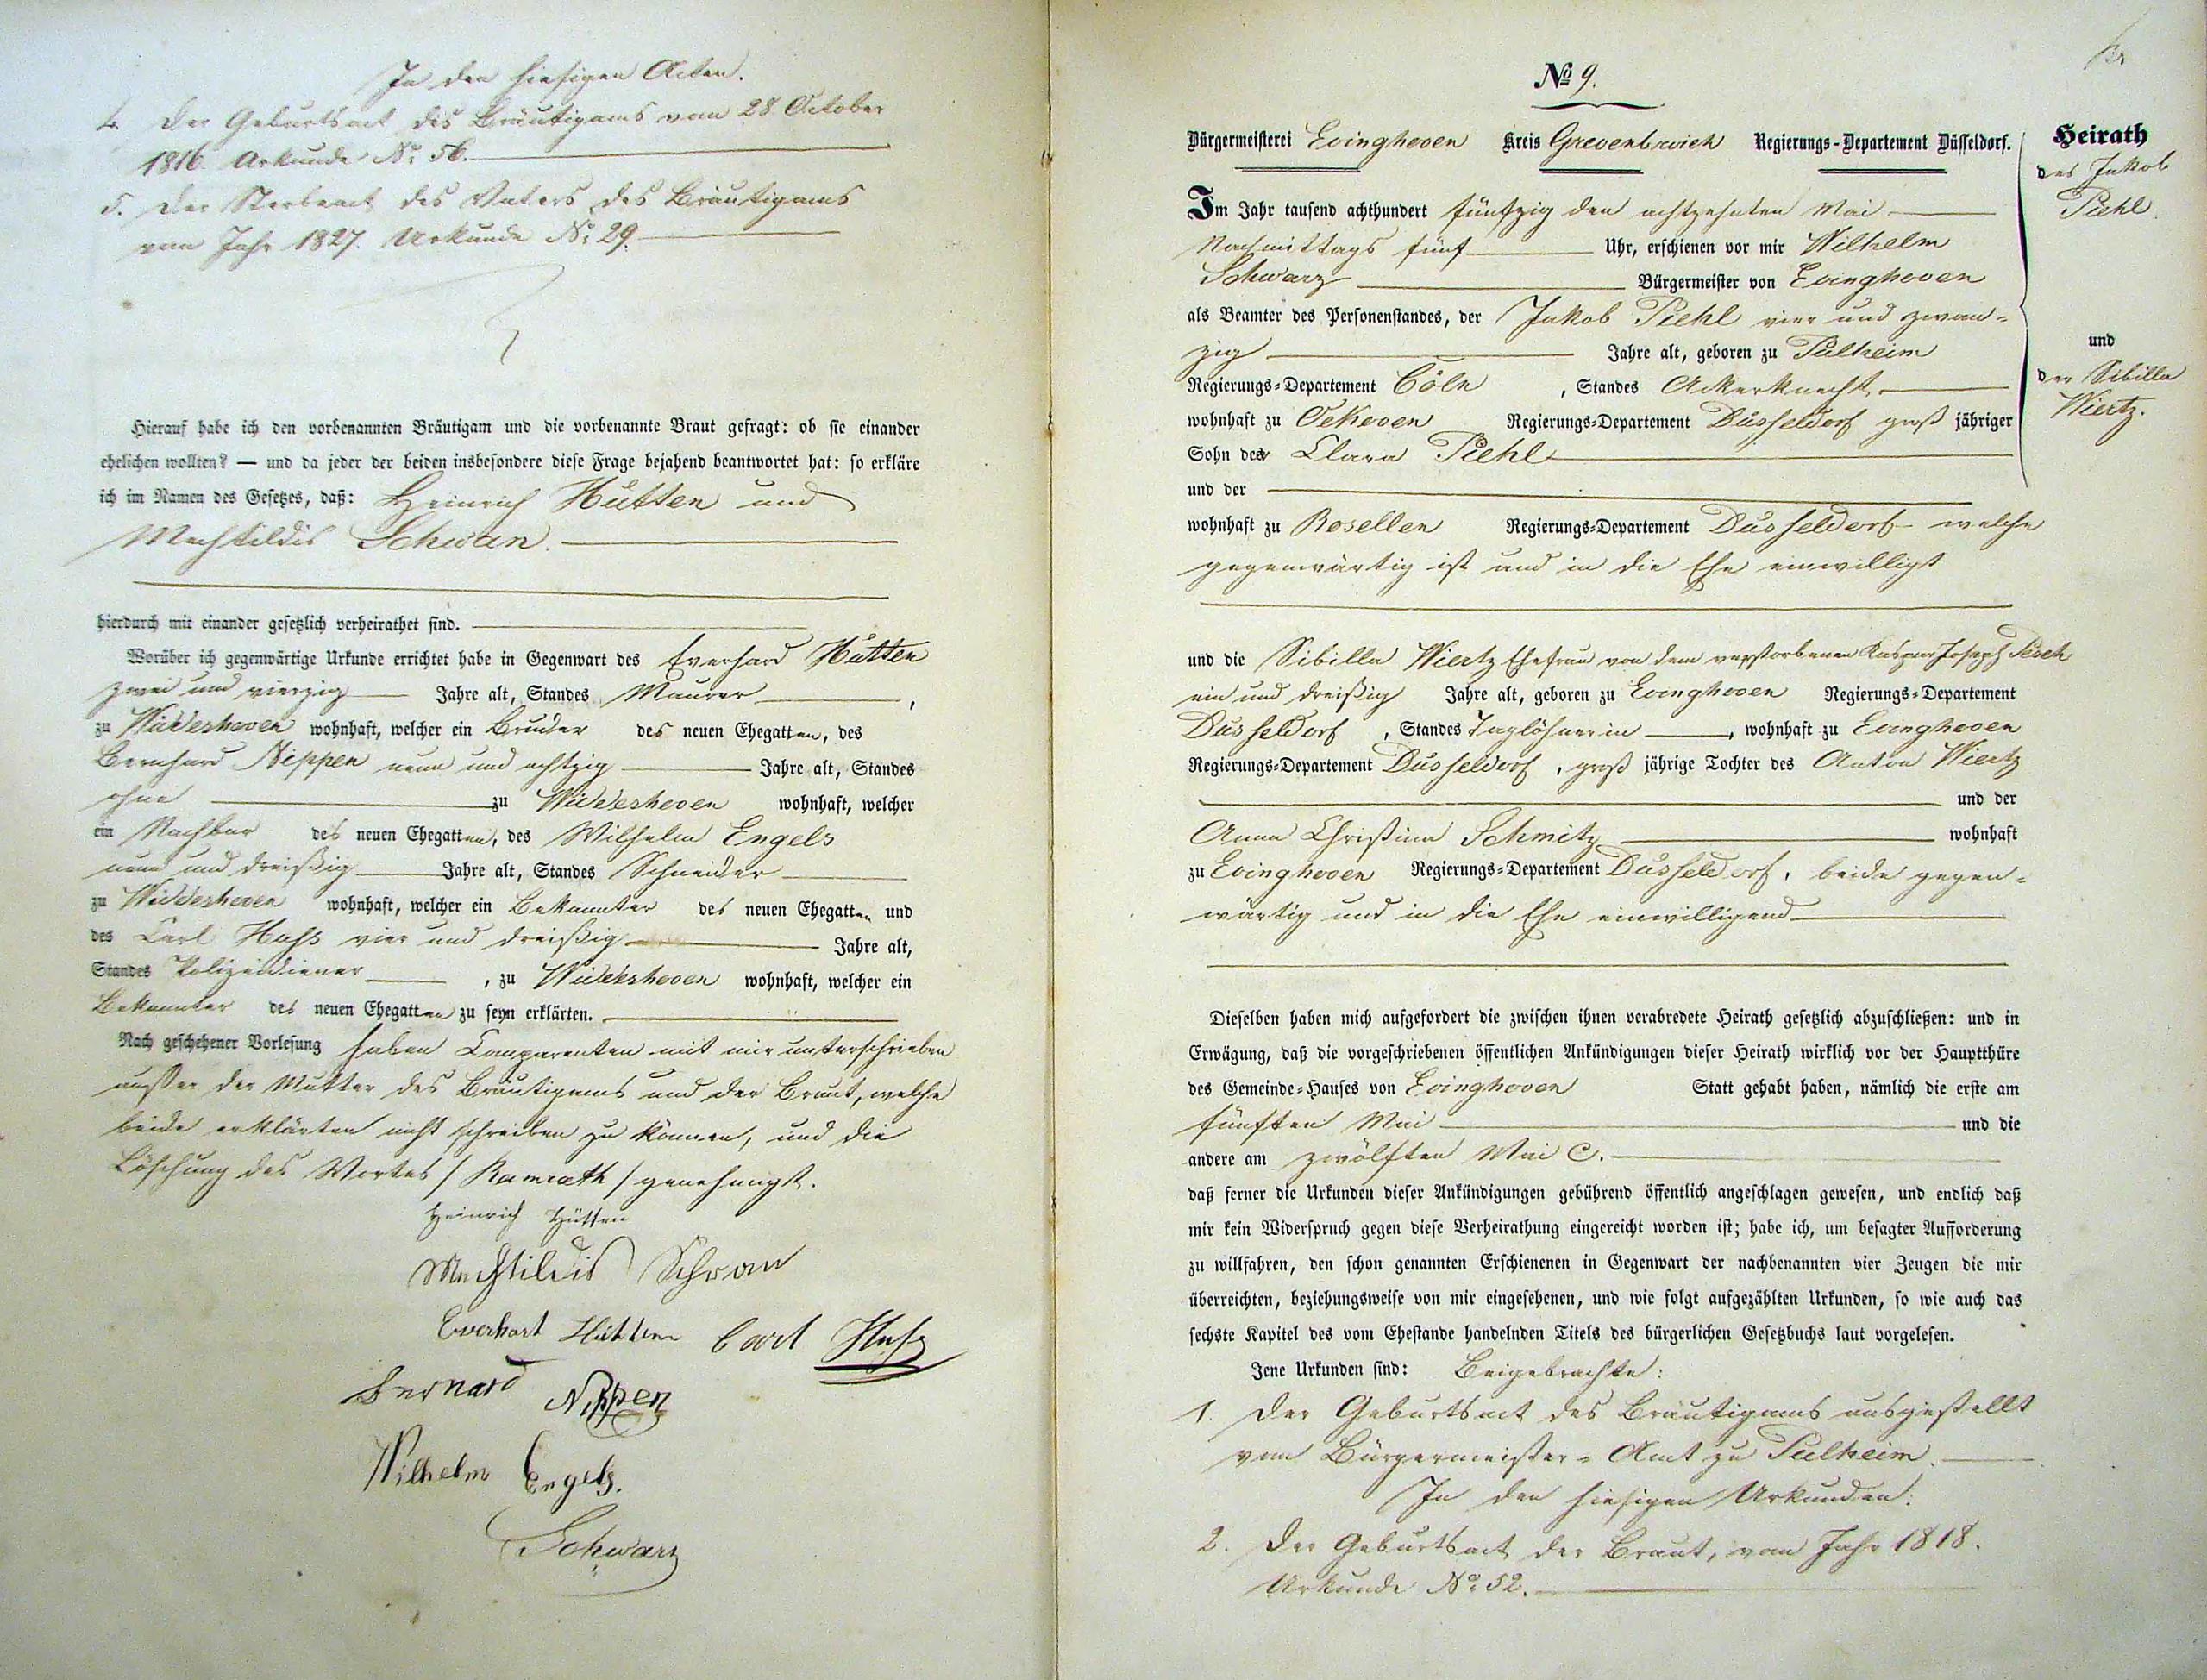 In den hiesigen Acten.
4. Der Geburtsact des Bräutigams vom 28 October
1816. Urkunde No. 56.
5. Der Sterbeact des Vaters des Bräutigams
vom Jahr 1827. Urkunde No. 29.
Hierauf habe ich den vorbenannten Bräutigam und die vorbenannte Braut gefragt: ob sie einander
ehelichen wollten? — und da jeder der beiden insbesondere diese Frage bejahend beantwortet hat: so erkläre
ich im Namen des Gesetzes, daß: Heinrich Hütten und
Mechtildis Schwan.
hierdurch mit einander gesetzlich verheirathet sind.
Worüber ich gegenwärtige Urkunde errichtet habe in Gegenwart des Everhard Hütten
zwei und vierzig Jahre alt, Standes Maurer,
zu Widdeshoven wohnhaft, welcher ein Bruder des neuen Ehegatten, des
Bernhard Nippen neun und achtzig Jahre alt, Standes
ohne zu Widdeshoven wohnhaft, welcher
ein Nachbar des neuen Ehegatten, des Wilhelm Engels
neun und dreißig Jahre alt, Standes Schneider
zu Widdeshoven wohnhaft, welcher ein Bekannter des neuen Ehegatten und
des Carl Huß vier und dreißig Jahre alt,
Standes Polizeidiener, zu Widdeshoven wohnhaft, welcher ein
Bekannter des neuen Ehegatten zu seyn erklärten.
Nach geschehener Vorlesung haben Comparenten mit mir unterschrieben
außer der Mutter des Bräutigams und der Braut, welche
beide erklärten nicht schreiben zu können, und die
Löschung des Wortes / Ramrath / genehmigt.
Heinrich Hütten
Mechtildis Schwan
Everhart Hütten Carl Huß
Bernard Nippen
Wilhelm Engels.
Schwarz
No 9.
Bürgermeisterei Evinghoven Kreis Grevenbroich Regierungs-Departement Düsseldorf.
Heirath
des Jakob
Piehl
und
der Sibilla
Wiertz.
Im Jahr tausend achthundert fünfzig den achtzehnten Mai
Nachmittags fünf Uhr, erschienen vor mir Wilhelm
Schwarz Bürgermeister von Evinghoven
als Beamter des Personenstandes, der Jakob Piehl vier und zwan-
zig Jahre alt, geboren zu Pulheim
Regierungs-Departement Cöln, Standes Ackerknecht
wohnhaft zu Oekoven Regierungs-Departement Düsseldorf groß jähriger
Sohn der Clara Piehl
und der
wohnhaft zu Rosellen Regierungs-Departement Düsseldorf welche
gegenwärtig ist und in die Ehe einwilligt
und die Sibilla Wiertz Ehefrau von dem verstorbenen Kaspar Joseph Pesch
ein und dreißig Jahre alt, geboren zu Evinghoven Regierungs-Departement
Düsseldorf, Standes Taglöhnerin, wohnhaft zu Evinghoven
Regierungs-Departement Düsseldorf, groß jährige Tochter des Anton Wiertz
und der
Anna Christina Schmitz wohnhaft
zu Evinghoven Regierungs-Departement Düsseldorf, beide gegen-
wärtig und in die Ehe einwilligend
Dieselben haben mich aufgefordert die zwischen ihnen verabredete Heirath gesetzlich abzuschließen: und in
Erwägung, daß die vorgeschriebenen öffentlichen Ankündigungen dieser Heirath wirklich vor der Hauptthüre
des Gemeinde-Hauses von Evinghoven Statt gehabt haben, nämlich die erste am
fünften Mai und die
andere am zwölften Mai c.
daß ferner die Urkunden dieser Ankündigungen gebührend öffentlich angeschlagen gewesen, und endlich daß
mir kein Widerspruch gegen diese Verheirathung eingereicht worden ist; habe ich, um besagter Aufforderung
zu willfahren, den schon genannten Erschienenen in Gegenwart der nachbenannten vier Zeugen die mir
überreichten, beziehungsweise von mir eingesehenen, und wie folgt aufgezählten Urkunden, so wie auch das
sechste Kapitel des vom Ehestande handelnden Titels des bürgerlichen Gesetzbuchs laut vorgelesen.
Jene Urkunden sind: Beigebrachte:
1. Der Geburtsact des Bräutigams ausgestellt
vom Bürgermeister-Amt zu Pulheim.
In den hiesigen Urkunden:
2. Der Geburtsact der Braut, vom Jahr 1818.
Urkunde No. 52.